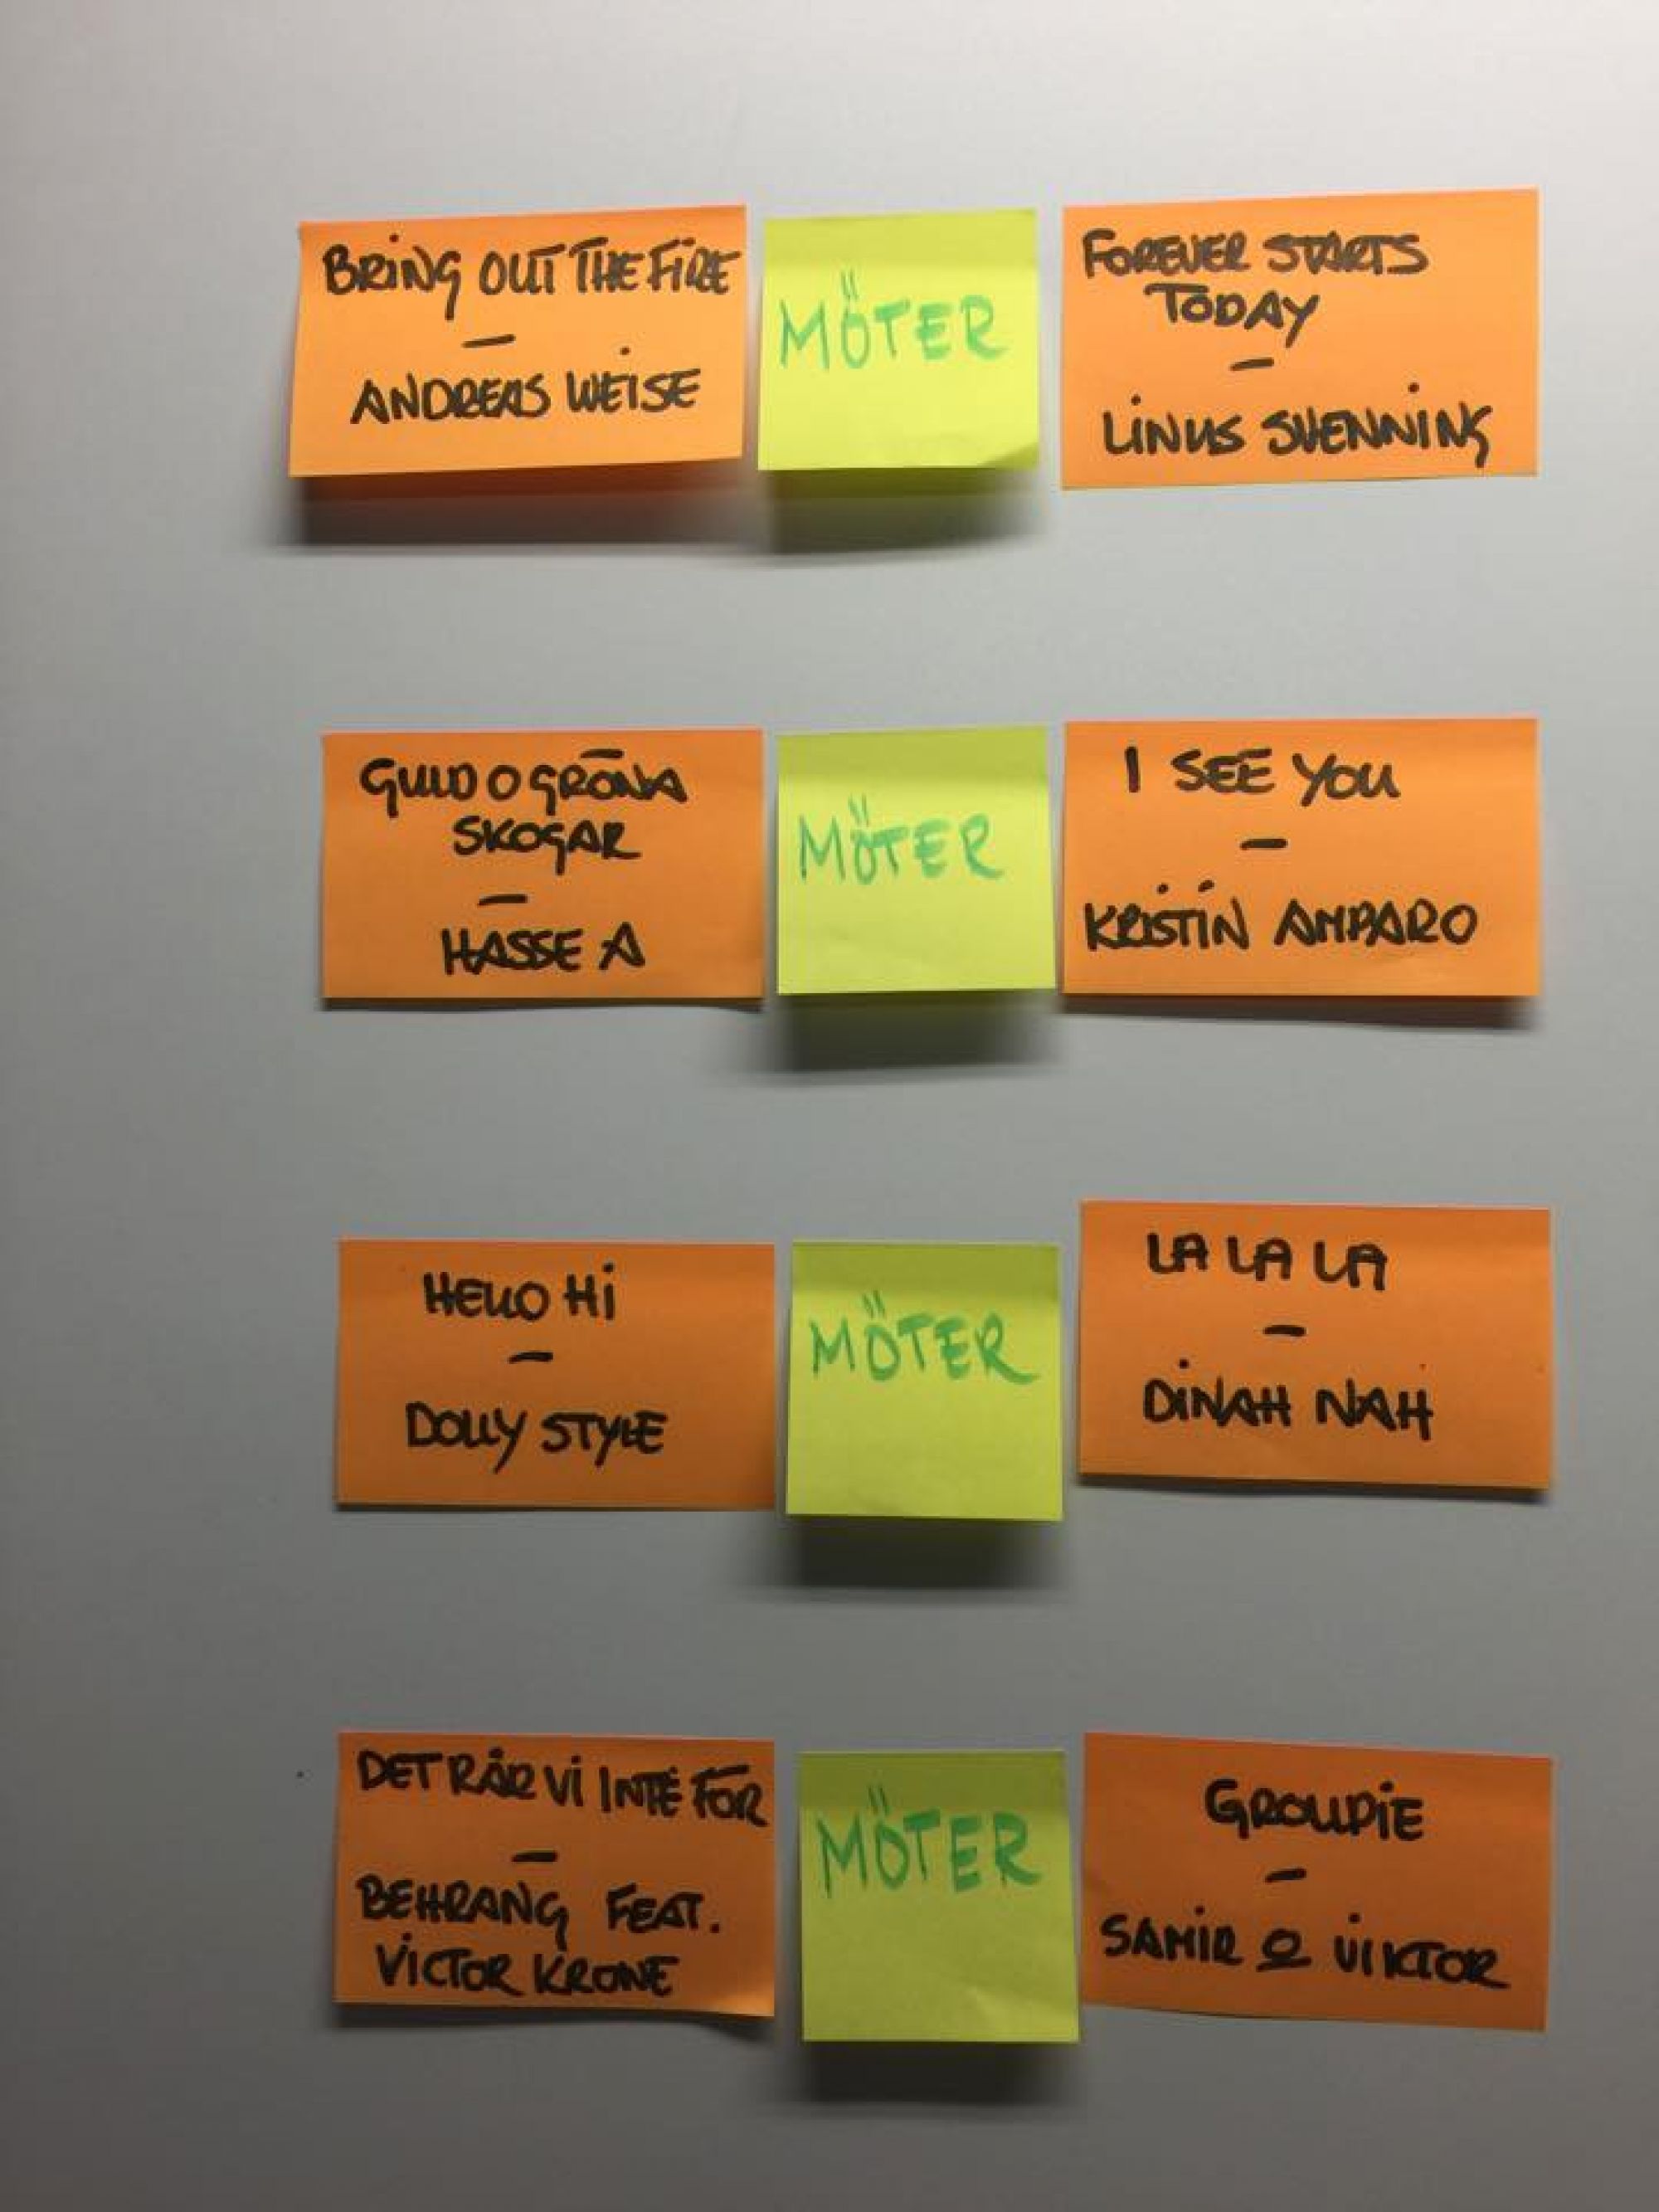 BRING OUT THE FIRE
–
ANDREAS WEISE
MÖTER
FOREVER STARTS
TODAY
–
LINUS SVENNING
GULD O GRÖNA
SKOGAR
–
HASSE A
MÖTER
I SEE YOU
–
KRISTIN AMPARO
HELLO HI
–
DOLLY STYLE
MÖTER
LA LA LA
–
DINAH NAH
DET RÅR VI INTE FÖR
–
BEHRANG FEAT.
VICTOR KRONE
MÖTER
GROUPIE
–
SAMIR O VIKTOR